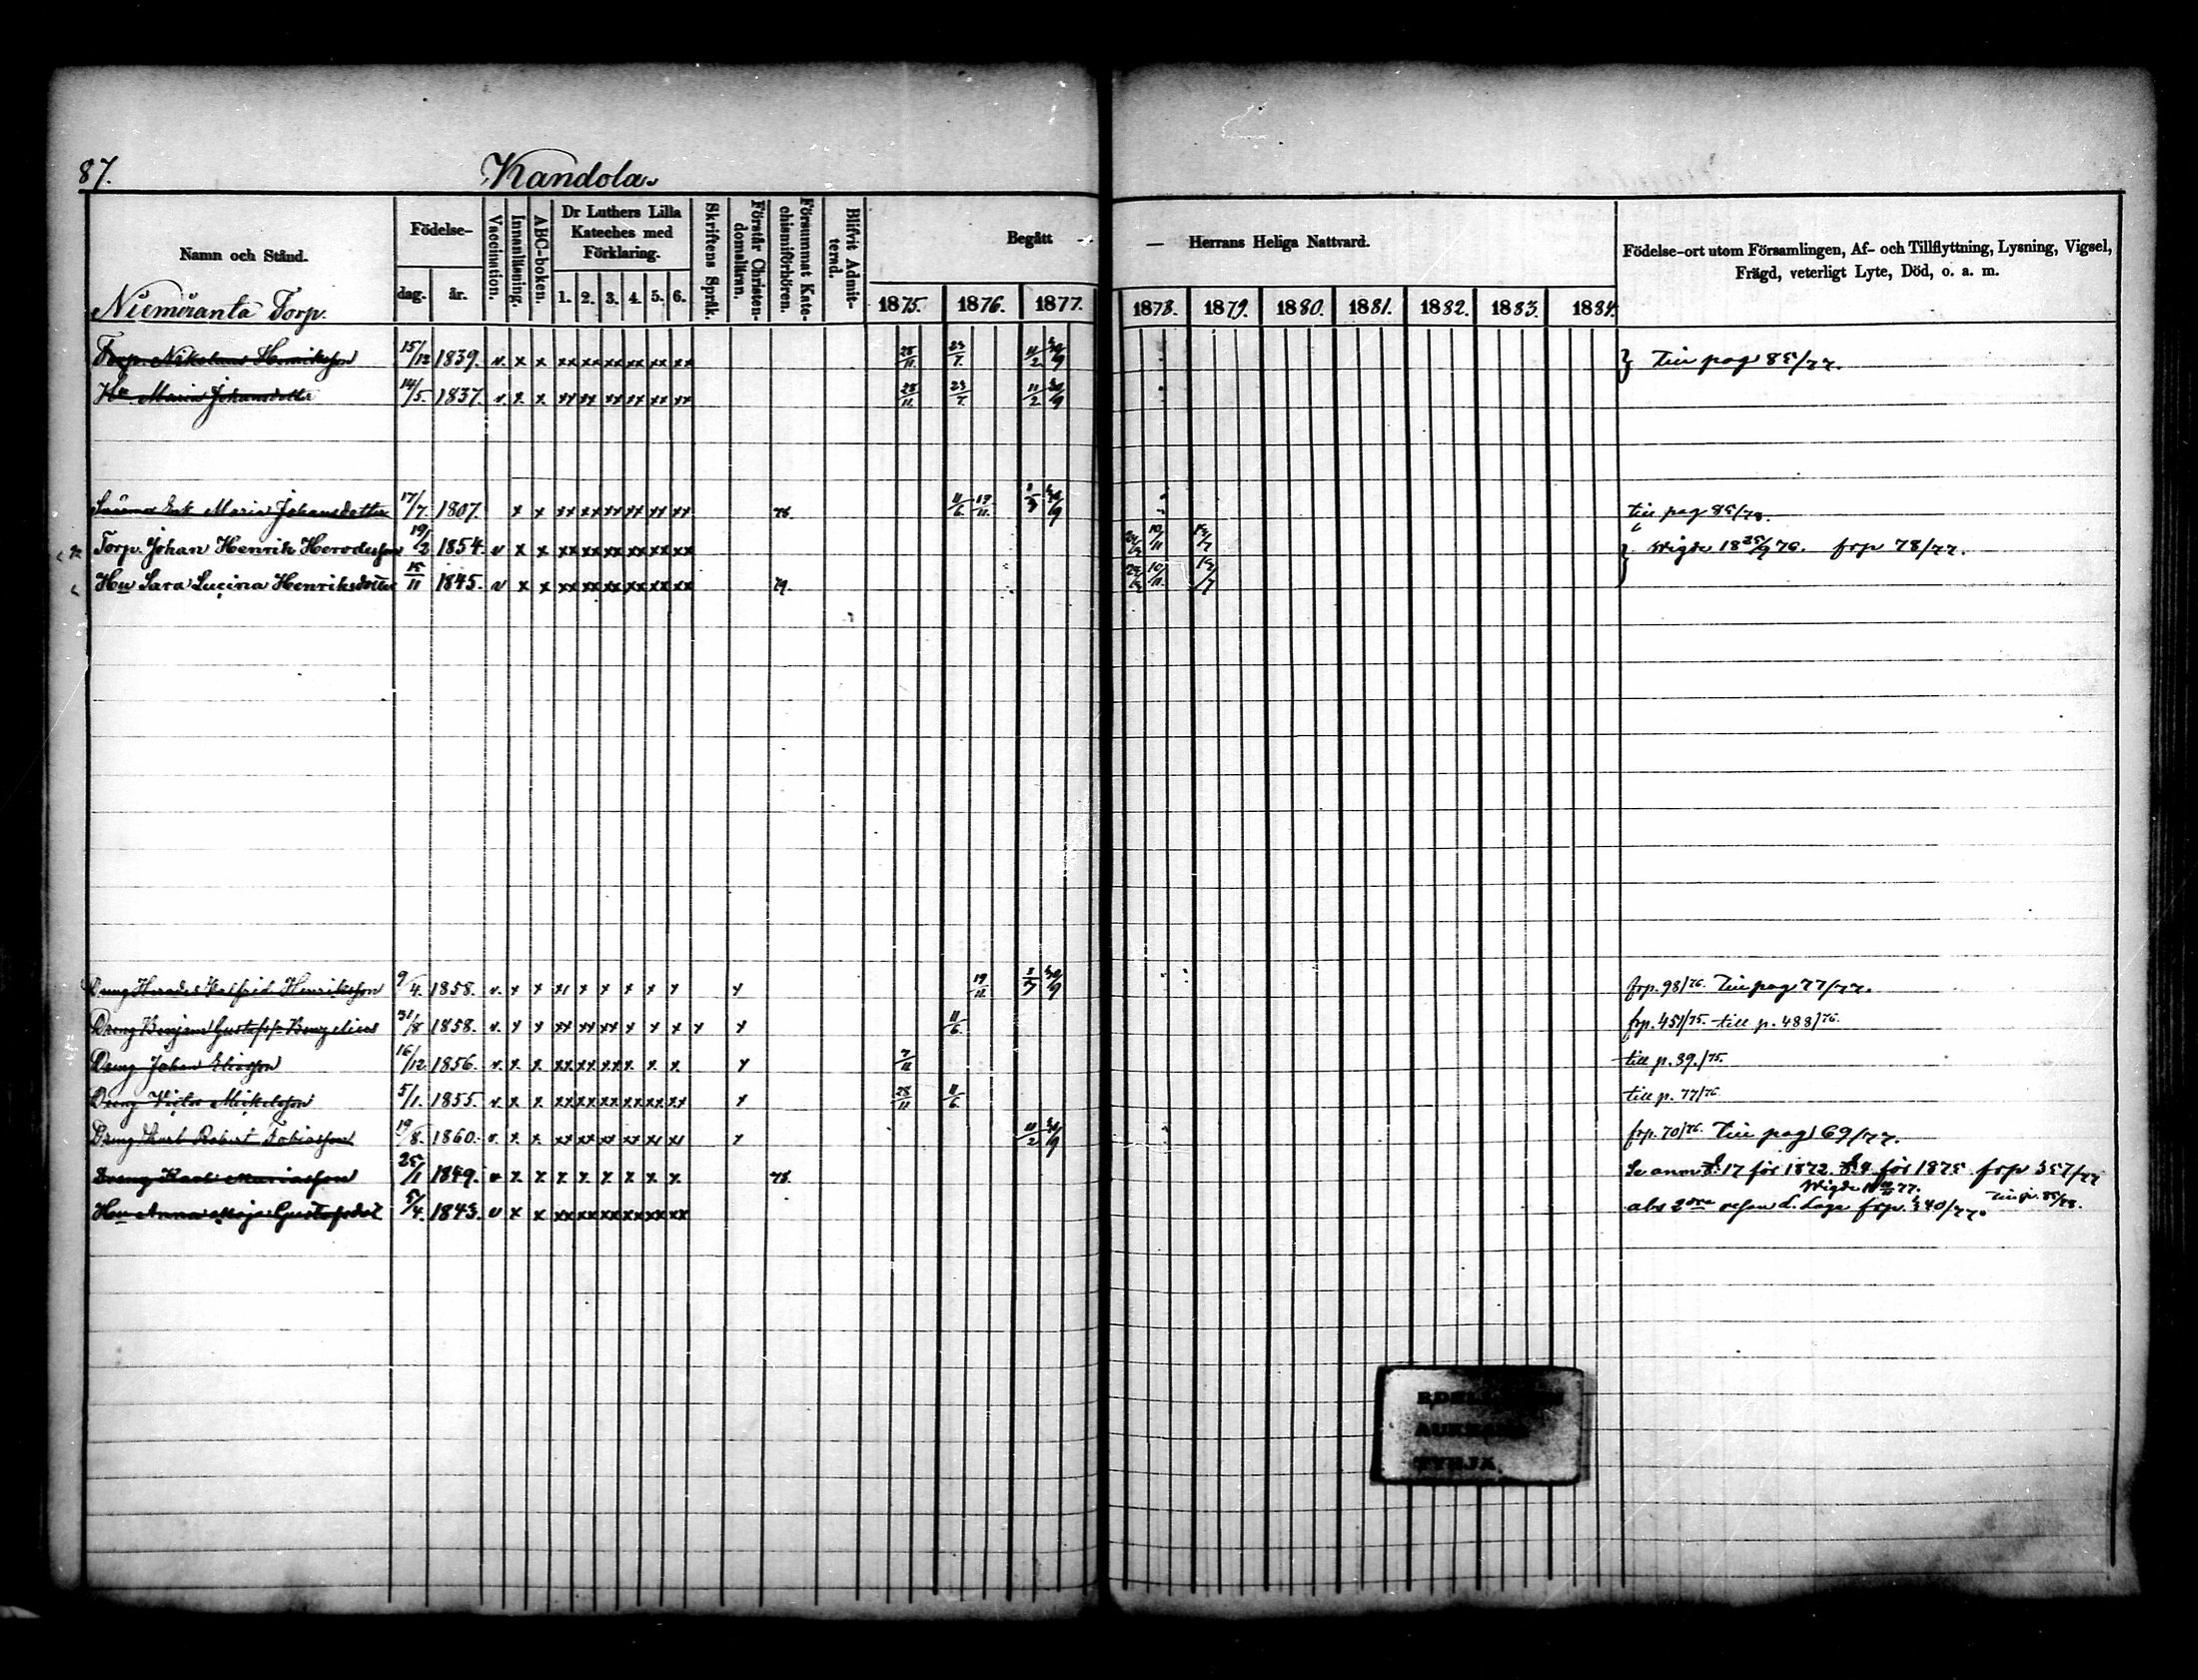 87.
Kandola.
Namn och Stånd.
Födelse-
dag.
år.
Vaccination.
Innanläsning.
ABC-boken.
Dr Luthers Lilla
Kateches med
Förklaring.
1. 2. 3. 4. 5. 6.
Skriftens Språk.
Förstår Christen-
domsläran.
Försummat Kate-
chismiförhören.
Blifvit Admit-
terad.
Begått — Herrans Heliga Nattvard.
1875. 1876. 1877. 1878. 1879. 1880. 1881. 1882. 1883. 1884.
Födelse-ort utom Församlingen, Af- och Tillflyttning, Lysning, Vigsel,
Frägd, veterligt Lyte, Död, o. a. m.
Niemiranta Torp.
Torp. Nikolaus Henriksson 15/12 1839. v. x x xx xx xx xx xx xx 28/11 23/7. 11/2 30/9 } till pag 85/77.
Hu Maria Johansdotter 14/5. 1837. v. x x xx xx xx xx xx xx 28/11 23/7. 11/2 30/9
Enk. Maria Johansdotter 17/7. 1807. x x xx xx xx xx xx xx 78. 11/6 19/11. 30/9 till pag 85/78.
Torp. Johan Henrik Herodesson 19/2 1854. v x x xx xx xx xx xx xx 10/11 } Wigde 18 25/9 76. frp 78/77.
Hu Sara Lucina Henriksdotter 15/11 1845. v x x xx xx xx xx xx xx 79. 10/11.
Dreng Herodes Walfrid Henriksson 9/4. 1858. v. x x x x x x x x 19/11. 30/9 frp. 98/76. till pag 77/77.
Dreng Benjam Gustafss. Bengelius 31/8 1858. v. x x xx xx xx x x x x x 11/6. frp. 451/75. till p. 488/76.
Dreng Johan Eliasson 16/12 1856. v. x x xx xx xx x x x x 7/11 till p. 39./75.
Dreng Victor Mickelsson 5/1. 1855. v. x x xx xx xx xx xx xx x 28/11 11/6. till p. 77/76
Dreng Karl Robert Tobiasson 19/8. 1860. v. x x xx xx xx xx xx xx x 11/2 30/9 frp. 70/76. till pag 69/77.
Dreng Karl Mariasson 25/1 1849. v x x x x x x x x 78. Se anm §. 17 för 1872. §. 4 för 1875. frp 357/77
Wigde 77.
Hu Anna Maja Gustafsdot 5/4. 1843. v x x xx xx xx xx xx xx abs 2dra resan frp. 340/77. till p. 85/78.